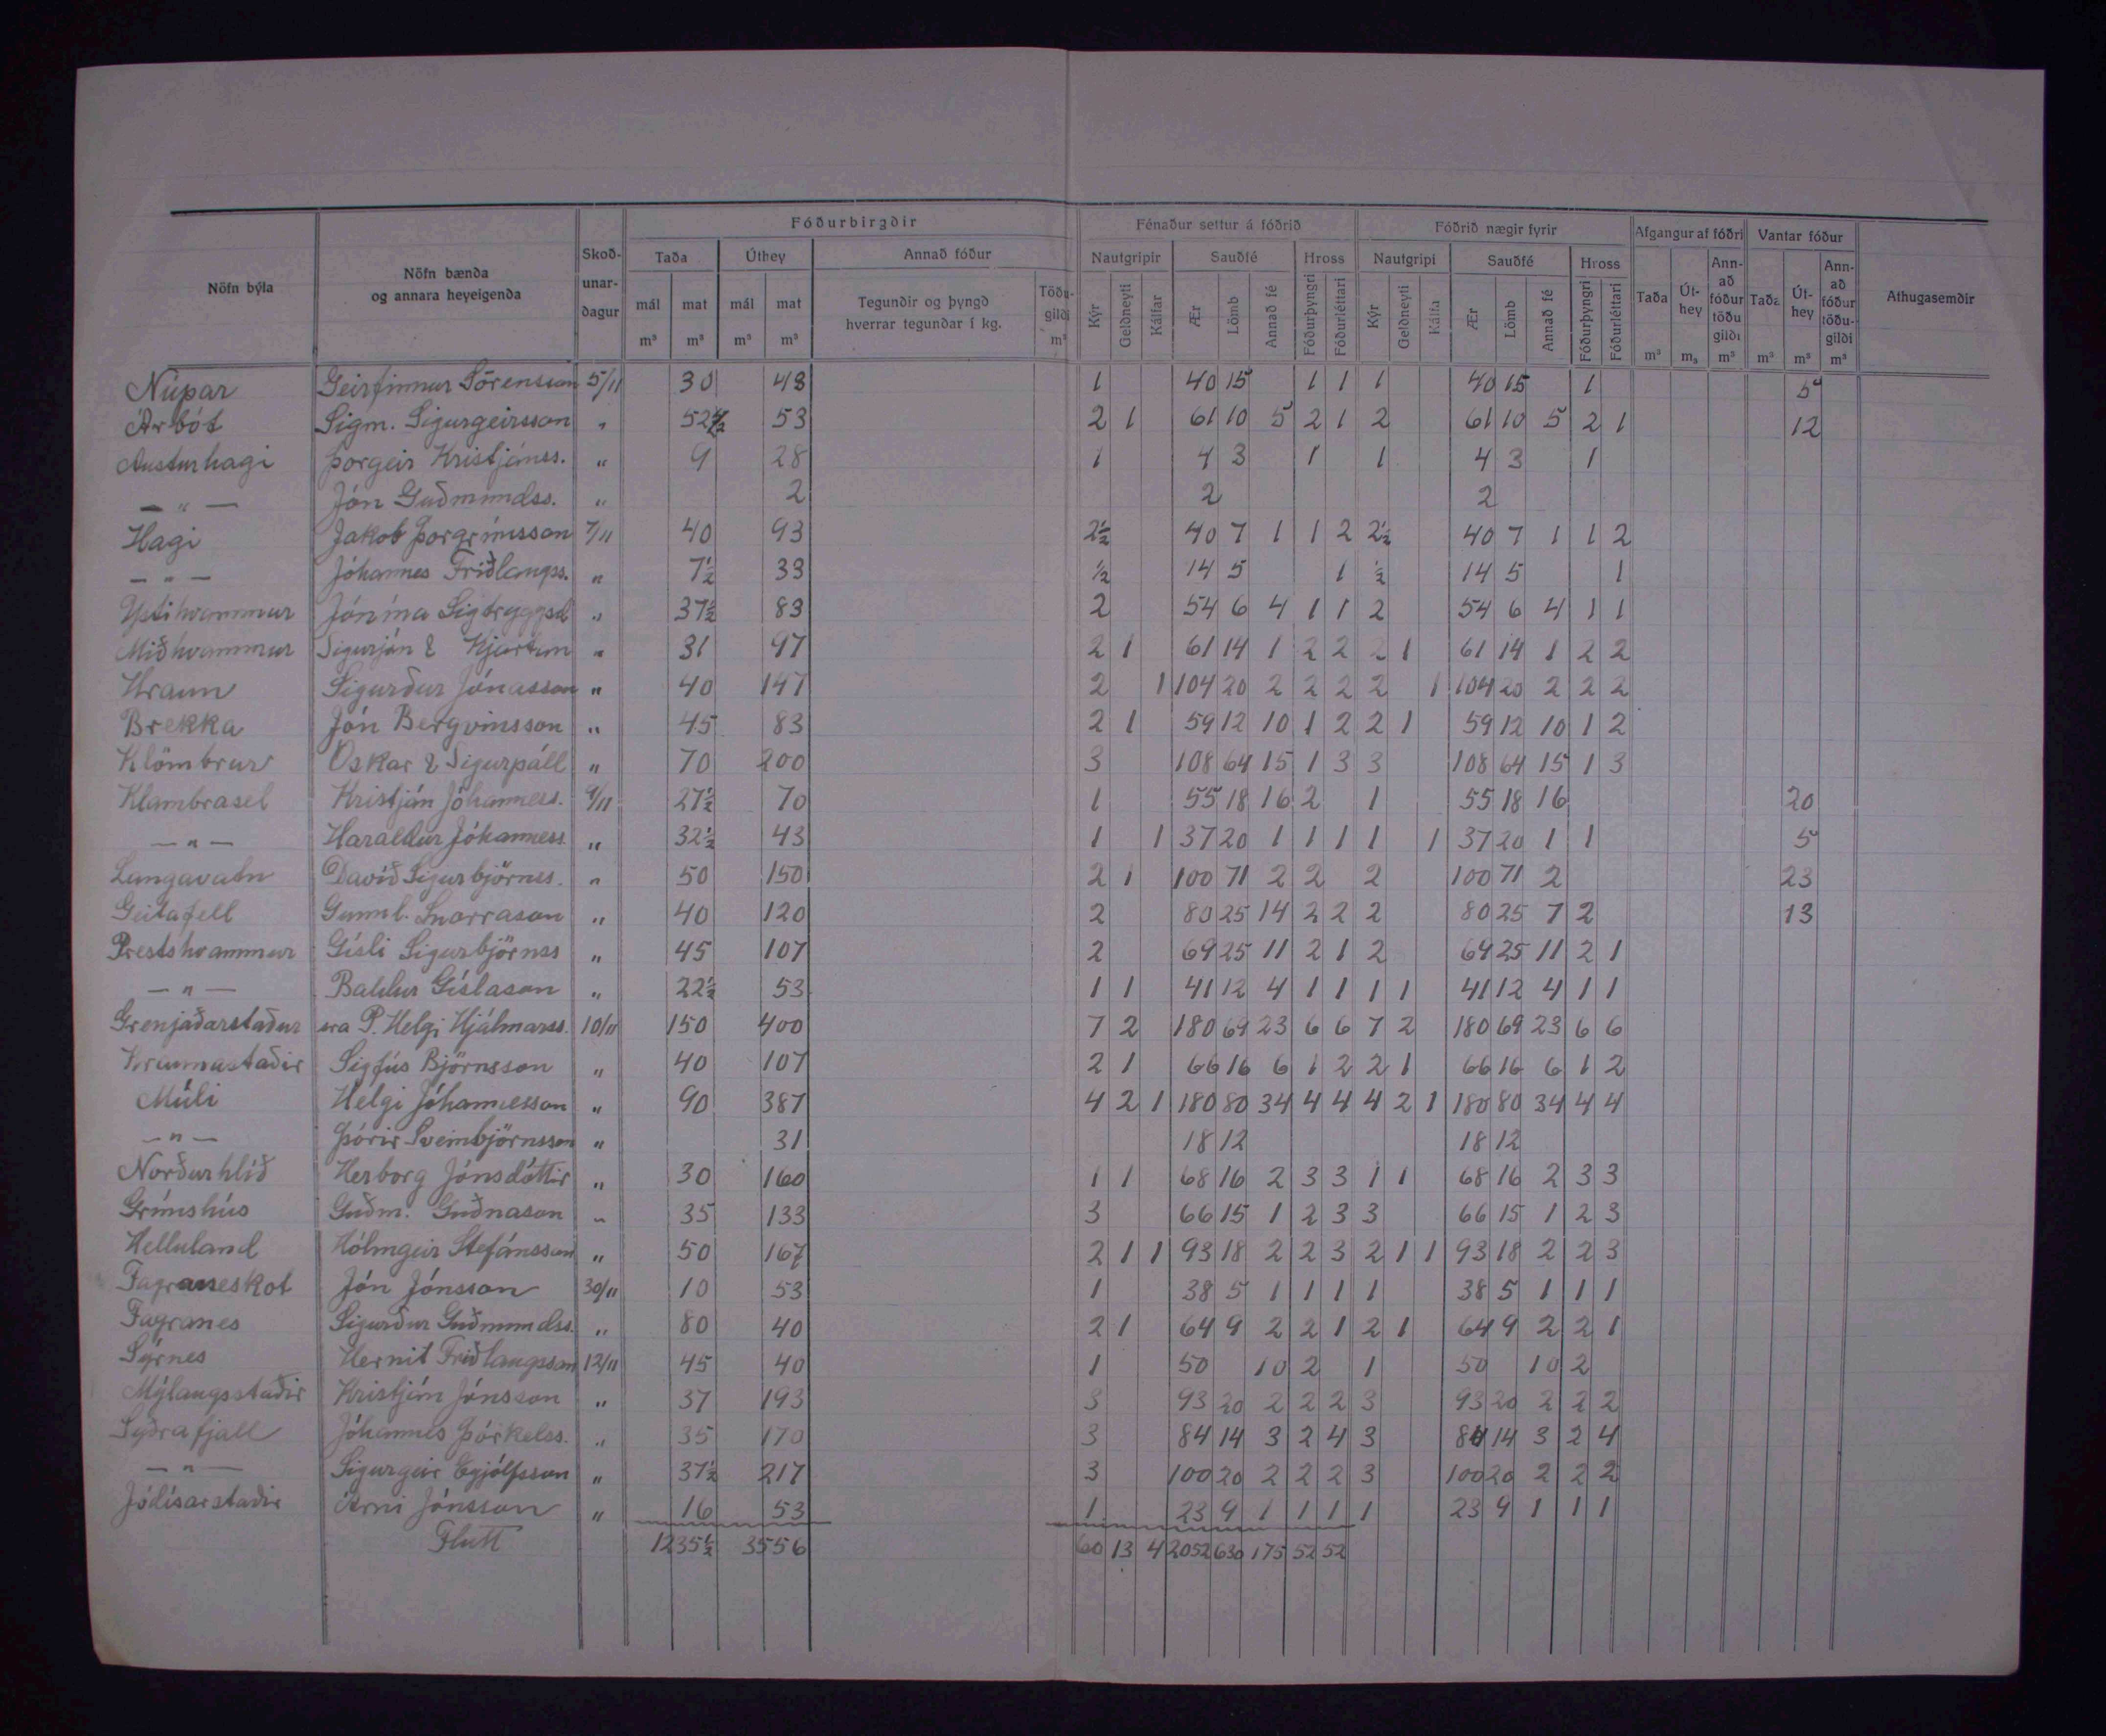 Fóðurbirgðir Fénaður settur á fóðrið Fóðrið nægir fyrir Afgangur af fóðri Vantar fóður
Nöfn býla Nöfn bænda og annara heyeigenda Skoðunardagur Taða Úthey Annað fóður Nautgripir Sauðfé Hross Nautgripi Sauðfé Hross Taða Úthey Annað fóður töðugildi Taða Úthey Annað fóður töðugildi Athugasemdir
mál mat mál mat Tegundir og þyngd hverrar tegundar í kg. Töðugildi Kýr Geldneyti Kálfar Ær Lömb Annað fé Fóðurþyngri Fóðurléttari Kýr Geldneyti Kálfa Ær Lömb Annað fé Fóðurþyngri Fóðurléttari
m³ m³ m³ m³ m³ m³ m₃ m³ m³ m³ m³
Núpar Geirfinnur Sörensson 5/11 30 48 1 40 15 1 1 1 40 15 1 5
Árbót Sigm. Sigurgeirsson " 52½ 53 2 1 61 10 5 2 1 2 61 10 5 2 1 12
Austurhagi Þorgeir Kristjánss. " 9 28 1 4 3 1 1 4 3 1
— " — Jón Guðmundss. " 2 2 2
Hagi Jakob Þorgrímsson 7/11 40 93 2½ 40 7 1 1 2 2½ 40 7 1 1 2
— " — Jóhannes Friðlaugss. " 7½ 33 ½ 14 5 1 ½ 14 5 1
Ystihvammur Jónína Sigtryggsd " 37½ 83 2 54 6 4 1 1 2 54 6 4 1 1
Miðhvammur Sigurjón & Kjartan " 31 97 2 1 61 14 1 2 2 2 1 61 14 1 2 2
Hraun Sigurður Jónasson " 40 147 2 1 104 20 2 2 2 2 1 104 20 2 2 2
Brekka Jón Bergvinsson " 45 83 2 1 59 12 10 1 2 2 1 59 12 10 1 2
Klömbrur Óskar & Sigurpáll " 70 200 3 108 64 15 1 3 3 108 64 15 1 3
Klambrasel Kristján Jóhanness. 9/11 27½ 70 1 55 18 16 2 1 55 18 16 20
— " — Haraldur Jóhanness. " 32½ 43 1 1 37 20 1 1 1 1 1 37 20 1 1 5
Langavatn Davíð Sigurbjörnss. " 50 150 2 1 100 71 2 2 2 100 71 2 23
Geitafell Gunnl. Snorrason " 40 120 2 80 25 14 2 2 2 80 25 7 2 13
Prestshvammur Gísli Sigurbjörnss " 45 107 2 69 25 11 2 1 2 69 25 11 2 1
— " — Baldur Gíslason " 22½ 53 1 1 41 12 4 1 1 1 1 41 12 4 1 1
Grenjaðarstaður sra Þ. Helgi Hjálmarss. 10/11 150 400 7 2 180 69 23 6 6 7 2 180 69 23 6 6
Hrannastaðir Sigfús Björnsson " 40 107 2 1 66 16 6 1 2 2 1 66 16 6 1 2
Múli Helgi Jóhannesson " 90 387 4 2 1 180 80 34 4 4 4 2 1 180 80 34 4 4
— " — Þórir Sveinbjörnsson " 31 18 12 18 12
Norðurhlíð Herborg Jónsdóttir " 30 160 1 1 68 16 2 3 3 1 1 68 16 2 3 3
Grímshús Guðm. Guðnason " 35 133 3 66 15 1 2 3 3 66 15 1 2 3
Helluland Hólmgeir Stefánsson " 50 167 2 1 1 93 18 2 2 3 2 1 1 93 18 2 2 3
Fagraneskot Jón Jónsson 30/11 10 53 1 38 5 1 1 1 1 38 5 1 1 1
Fagranes Sigurður Guðmundss. " 80 40 2 1 64 9 2 2 1 2 1 64 9 2 2 1
Sýrnes Hernit Friðlaugsson 12/11 45 40 1 50 10 2 1 50 10 2
Mýlaugsstaðir Kristján Jónsson " 37 193 3 93 20 2 2 2 3 93 20 2 2 2
Syðrafjall Jóhannes Þórkelss. " 35 170 3 84 14 3 2 4 3 84 14 3 2 4
— " — Sigurgeir Eyjólfsson " 37½ 217 3 100 20 2 2 2 3 100 20 2 2 2
Jódísarstaðir Árni Jónsson " 16 53 1 23 9 1 1 1 1 23 9 1 1 1
Flutt 1235½ 3556 60 13 4 2052 630 175 52 52